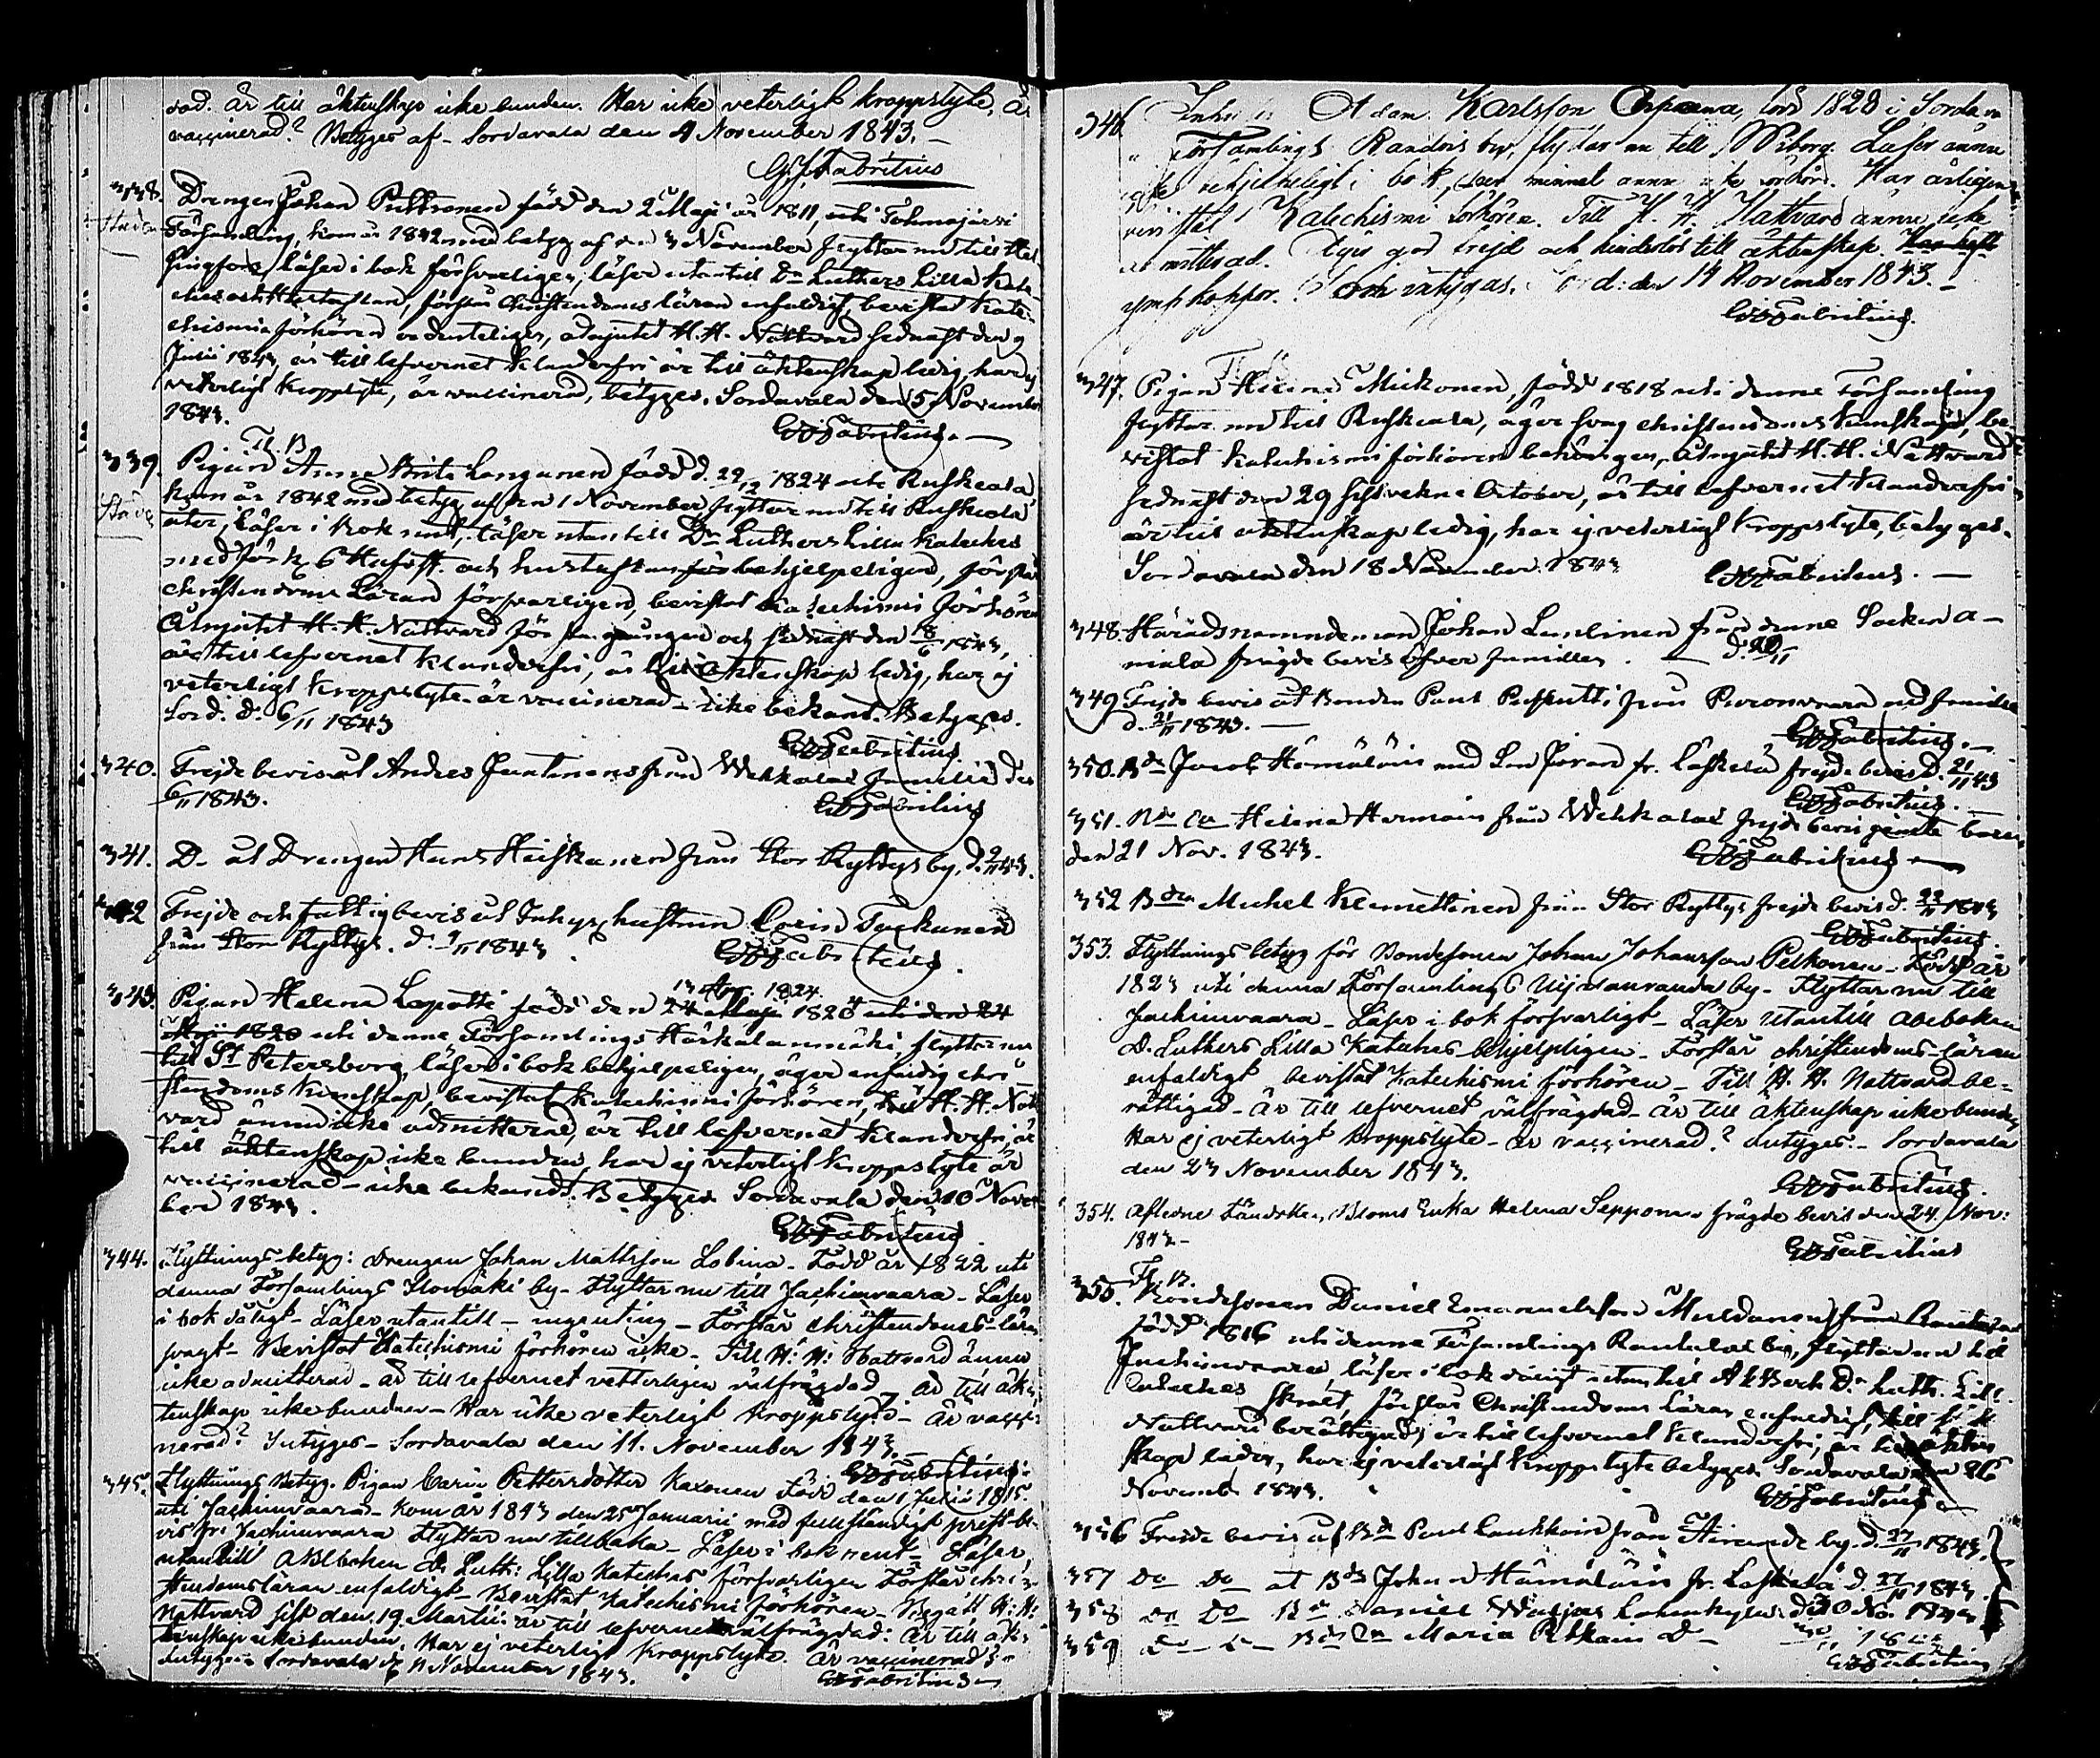 vad. Är till äktenskap icke bunden. Har icke veterligt kroppslyte, är
vaccinerad? Betyges af - Sordavala den 4 November 1843. -
Fabritius
338. Drengen Johan Puttronen född den 2 Maji år 1811, uti Tohmajärvi
Staden Församling, kom år 1842 med betyg af den 3 November flyttar nu till Hel-
singfors, läser i bok försvarligen, läser utantill Dr Luthers Lilla Kate-
ches och Hustaflan, förstår Christendoms läran enfaldigt, bevistat Kate-
chismi förhören ordenteligen, adnjutit H. H. Nattvard sednast den 9
Julii 1843, är till lefvernet klanderfri är till äktenskap ledig, har ej
veterligt kroppslyte, är vaccinerad, betyges. Sordavala den 5 November
1843.
Fabritius.
Fl. B.
339. Pigan Anna Brita Langunen född d. 29/12 1824 uti Ruskeala,
Staden kom år 1842 med betyg af den 1 November flyttar nu till Ruskeala
åter, Läser i bok rent, läser utantill Dr Luthers Lilla kateches
med förk. 6 Hufvst. och hustaflan behjelpeligen, förstår
christendoms Läran försvarligen, bevistat Katechismi förhören
Adnjutit H. H. Nattvard för sin gången och sednast den 18/6 1843,
är till lefvernet klanderfri, är till äktenskap ledig, har ej
veterligt kroppslyte. är vaccinerad - icke bekant. Betyges.
Sord. d. 6/11 1843
Fabritius.
340. Frejdebevis åt Andres Juntinens från Wekkalax familie den
6/11 1843.
Fabritius
341. Do åt Drengen Hans Heiskanen från Stor Ryttys by, d. 9/11 43.
342 Frejde och fattigbevis åt Inhyses hustrun Carin Tackunen
från Stor Ryttys. d. 9/11 1843.
Fabritius.
13 Apr. 1824
343. Pigan Helena Lapatti född den 24 Maji 1820 uti den 24
Maji 1820 uti denne Församlings Härkälanmäki, flyttar nu
till St Petersborg, läser i bok behjelpeligen, äger enfaldig chri-
stendoms kunskap, bevistat Katechismi förhören, till H. H. Natt-
vard ännu icke admitterad, är till lefvernet klanderfri, är
till äktenskap icke bunden, har ej veterligt kroppslyte är
vaccinerad - icke bekandt. Betyges Sordavala den 10 Novem-
ber 1843.
Fabritius
344. Flyttnings betyg: Drengen Johan Mattsson Lobina. Född år 1822 uti
denna Församlings Ilomäki by - Flyttar nu till Jachimvaara - Läser
i bok dåligt - Läser utantill - ingenting - Förstår christendoms-läran
svagt - Bevistat Katechismi förhören icke. Till H: H: Nattvard ännu
icke admitterad - är till lefvernet vetterligen välfrägdad - är till äk-
tenskap icke bunden - Har icke veterligt kroppslyte - är vacci-
nerad? Intyges - Sordavala den 11. November 1843. -
Fabritius
345. Flyttnings Betyg. Pigan Carin Pettersdotter Kaxonen Född den 1 Julii 1815.
uti Jachimvaara - kom år 1843 den 25 Januarii med fullständigt prest-be-
vis fr. Jachimvaara Flyttar nu tillbaka - Läser i bok rent - Läser
utantill ABCboken Dr Luth: Lilla Kateches försvarligen Förstår chri-
stendomsläran enfaldigt - Bevistat Katechismi förhören - Begått H: H:
Nattvard sist den 19. Martii. är till lefvernet välfrägdad: är till äk-
tenskap icke bunden. Har ej veterligt Kroppslyte. är vaccinerad?
Intyges. Sordavala d. 11 November 1843.
Fabritius
346 Adam Karlsson född 1828 i Sordavala
Församlings Randois by, flyttar nu till Wiborg. Läser ännu
icke behjelpeligt i bok, per minnet ännu icke. Har årligen
bevistat Katechismi förhören. Till H. H. Nattvard ännu icke
admitterad. Äger god frejd och hinderlös till äktenskap. Har haft
ymphoppor. Som intygas. Sord: den 14 November 1843. -
Fabritius.
347. Pigan Helena Mickonen, född 1818 uti denne Församling
flyttar nu till Ruskeala, äger svag christendoms kunskap, be-
vistat katechismi förhören behörigen, Adnjutit H. H. Nattvard
sednast den 29 sistvekne October, är till lefvernet klanderfri
är till äktenskap ledig, har ej veterligt kroppslyte, betyges.
Sordavala den 18 November 1843
Fabritius. -
348. Häradsnämndeman Johan Lumlinen från denne Socken a-
niala frägde bevis öfver familler. - d. 20/11
349 Frejde bevis åt Bonden Paul Pusputti från Puronvaara med familie
d. 21/11 1843. -
Fabritius. -
350. Bdn Jacob Hämäläin med Son Jöran fr. Läskelä frejdebevis d. 21/11 43
Fabritius.
351. Helena Hermain från Wekkalax frejde bevis
den 21 Nov. 1843.
Fabritius -
352 Bden Michel Klemettinen från Stor Ryttys frejde bevis d. 22/11 1843
Fabritius.
353. Flyttnings betyg för Bondesonen Johan Johansson Pelkonen - Född år
1823 uti denna Församlings by - Flyttar nu till
Jachimvaara - Läser i bok försvarligt - Läser utantill Abcboken
D. Luthers Lilla Kateches behjelpligen - Förstår christendoms-läran
enfaldigt, bevistat Katechismi förhören - Till H. H. Nattvard be-
rättigad - är till lefvernet välfrägdad - är till äktenskap icke bunden
Har ej veterligt kroppslyte - är vaccinerad? Intyges - Sordavala
den 23 November 1843.
Fabritius.
354. Aflidne Fändriken Bloms Enka Helena Sepponen frägde bevis den 24. Nov:
1843 -
Fabritius
Fl. B.
355. Bondesonen Daniel Emanuelsson Muldanen från
född 1816 uti denne Församlings Rautalax by, flyttar nu till
Jachimvaara, läser i bok svagt utantill AbBock Dr Luth. Lill.
Kateches Skralt, förstår Christendoms Läran enfaldigt, till H. H.
Nattvard berättigad, är till lefvernet klanderfri, är till äkten-
skap ledig, har ej veterligt kroppslyte betyges Sordavala den 26
November 1843.
Fabritius
356 Frejde bevis åt Bd Paul Laukkain från Airande by. d. 27/11 1843.
357 Do Do åt Bdn Johan Hämäläin fr. Läskelä d. 27/11 1843
358 Do Do Bdn Daniel Waljas d. 30 No. 1843
359 Do Maria Pitkain D -
Fabritius